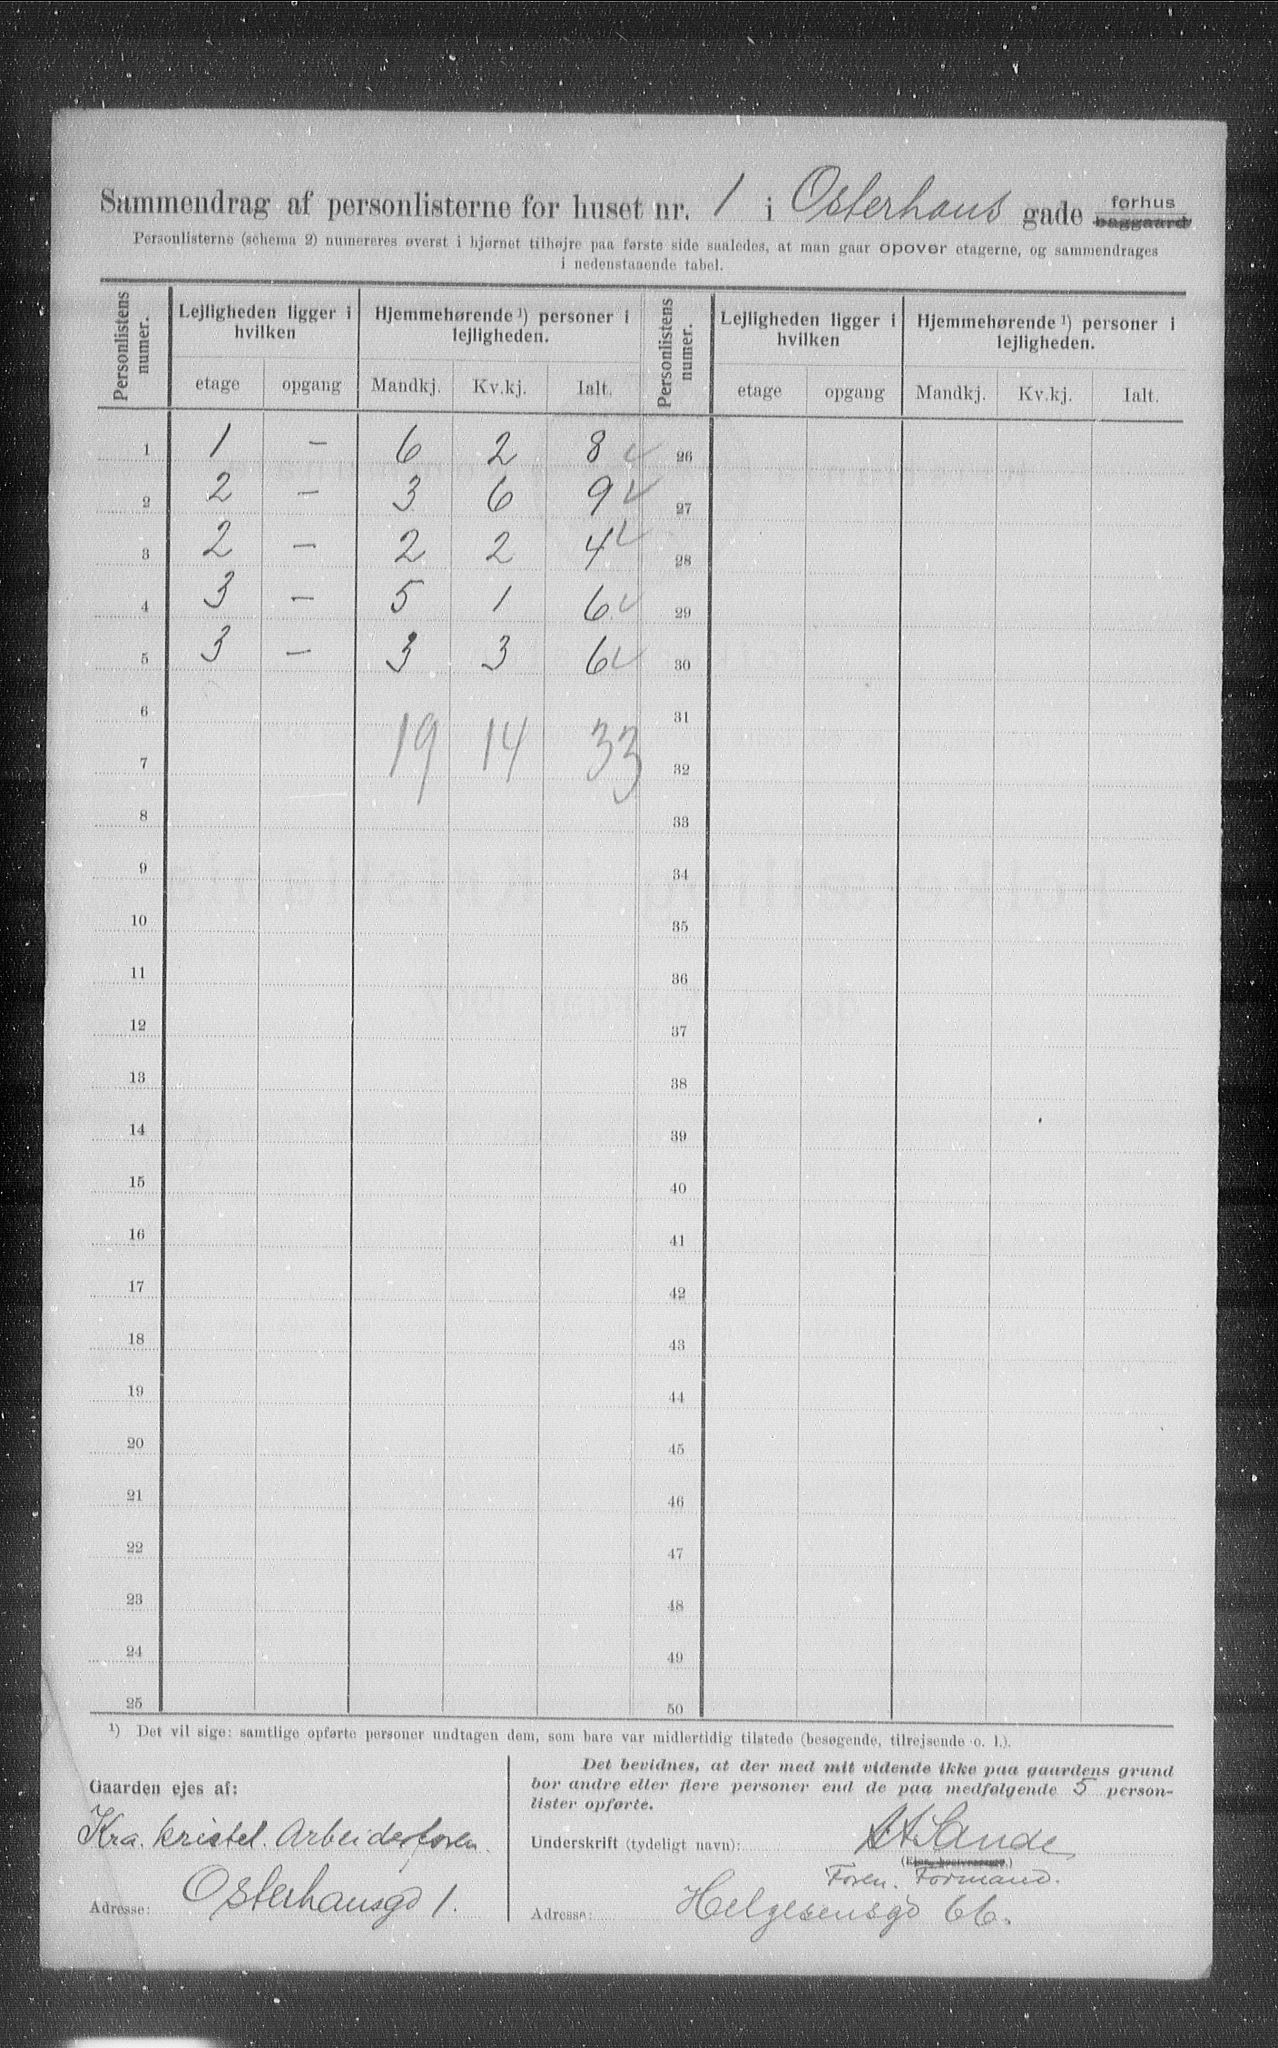 Sammendrag af personlisterne for huset nr. 1 i Osterhaus gade forhus baggaard
Personlisterne (schema 2) numereres øverst i hjørnet tilhøjre paa første side saaledes, at man gaar opover etagerne, og sammendrages
i nedenstaaende tabel.
Personlistens numer. Lejligheden ligger i hvilken Hjemmehørende ¹) personer i lejligheden. Personlistens numer. Lejligheden ligger i hvilken Hjemmehørende ¹) personer i lejligheden.
etage opgang Mandkj. Kv.kj. Ialt. etage opgang Mandkj. Kv.kj. Ialt.
1 1 – 6 2 8 ✓ 26
2 2 – 3 6 9 ✓ 27
3 2 – 2 2 4 ✓ 28
4 3 – 5 1 6 ✓ 29
5 3 – 3 3 6 ✓ 30
6 31
7 19 14 33 32
8 33
9 34
10 35
11 36
12 37
13 38
14 39
15 40
16 41
17 42
18 43
19 44
20 45
21 46
22 47
23 48
24 49
25 50
¹) Det vil sige: samtlige opførte personer undtagen dem, som bare var midlertidig tilstede (besøgende, tilrejsende o. l.).
Gaarden ejes af:
Kra. kristel. Arbeiderforen.
Adresse: Osterhausgd 1.
Det bevidnes, at der med mit vidende ikke paa gaardens grund
bor andre eller flere personer end de paa medfølgende 5 person-
lister opførte.
Underskrift (tydeligt navn): A A Sande
(Ejer, bestyrer.)
Foren. Formand.
Adresse: Helgesensgd 66.